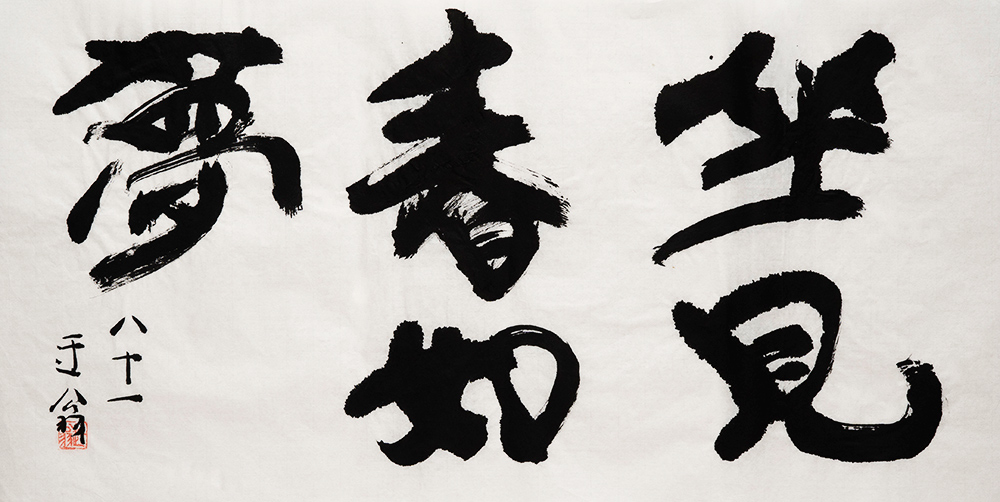 坐見
春如
夢
八十一
翁